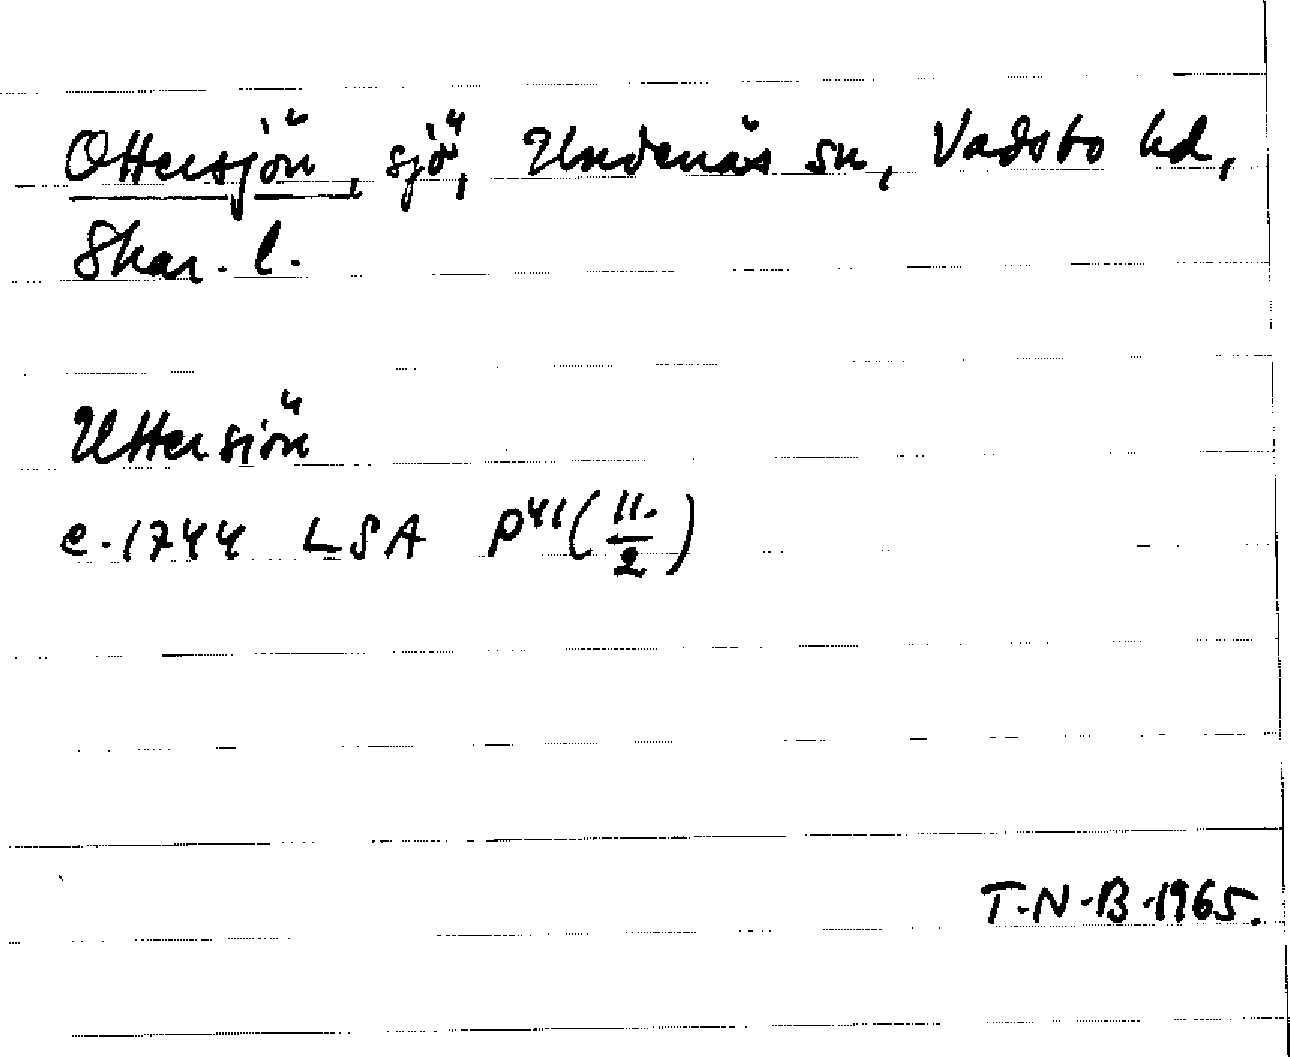 Ottersjön, sjö, Undenäs sn, Vadsbo hd,
Skar. l.
Uttersiön
c. 1744 LSA P41 (11./2)
T.N.B. 1965.